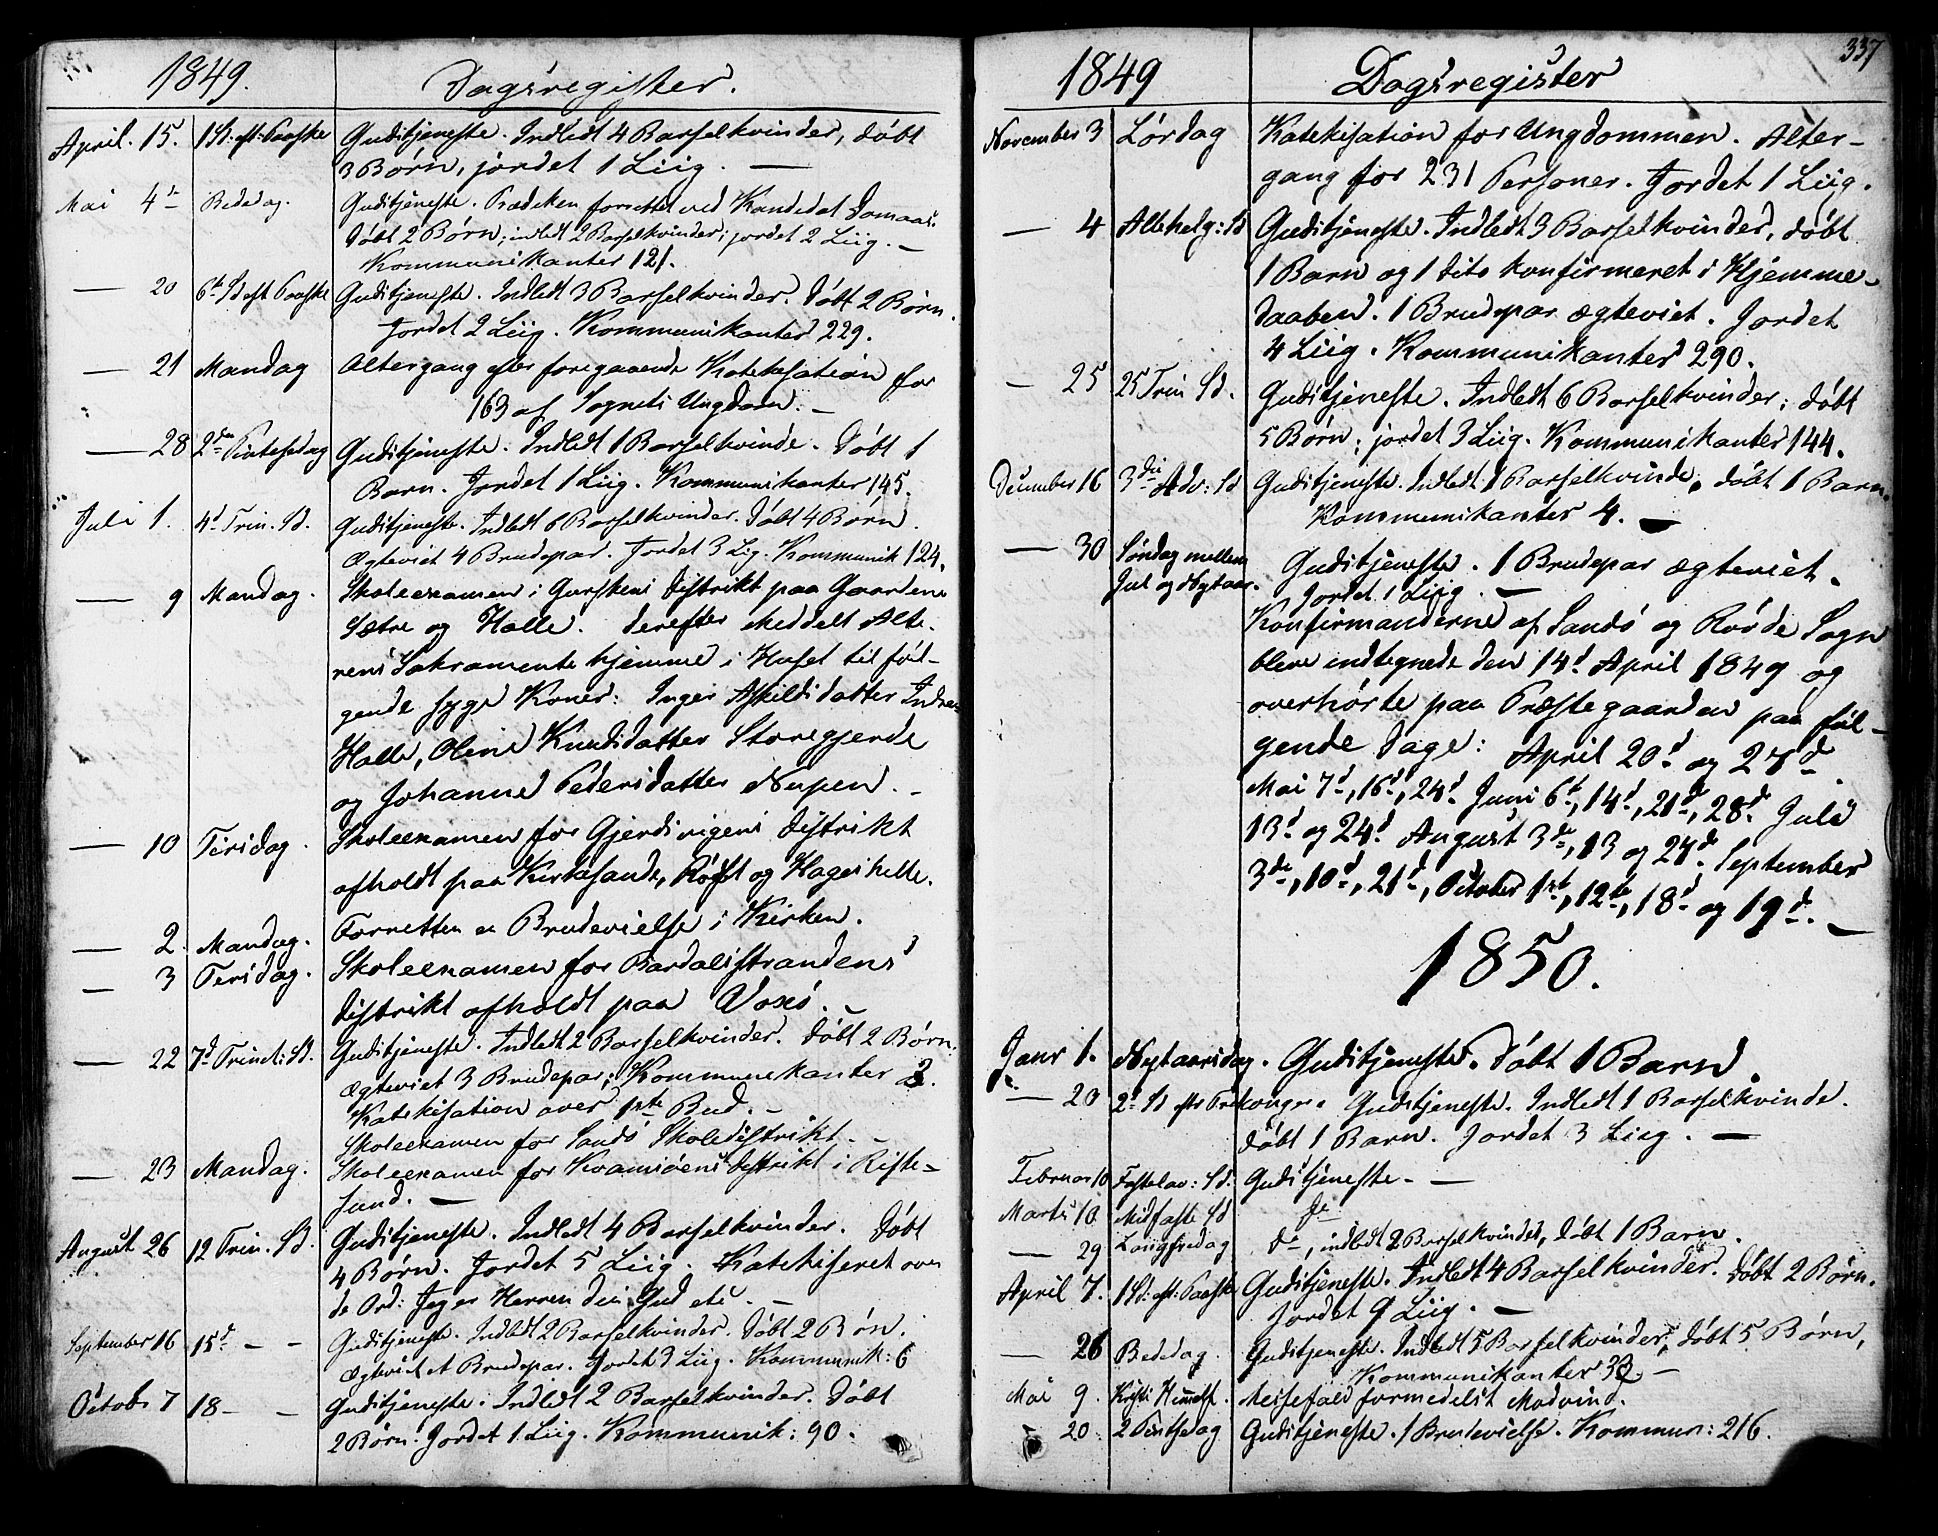 1849. Dagsregister.
April. 15. 1 Sd. eft: Paaske Gudstjeneste. Indledt 4 Barselkvinder, døbt
3 Børn, jordet 1 Liig. —
Mai 4de Bededag. Gudstjeneste. Prædiken forrettet ved Kandidat Domaas.
Døbt 2 Børn; indledt 2 Barselkvinder; jordet 2 Liig. —
Kommunikanter 121.
— 20 6te Sd eft Paaske Gudstjeneste. Indledt 3 Barselkvinder. Døbt 2 Børn.
Jordet 2 Liig. Kommunikanter 229.
— 21 Mandag Altergang efter foregaaende Katekisation for
163 af Sognets Ungdom. —
— 28 2den Pintsedag Gudstjeneste. Indledt 1 Barselkvinde. Døbt 1
Barn. Jordet 1 Liig. Kommunikanter 145.
Juli 1. 4d Trin. Sd. Gudstjeneste. Indledt 6 Barselkvinder. Døbt 4 Børn.
Ægteviet 4 Brudepar. Jordet 3 Lig. Kommunik 124.
— 9 Mandag. Skoleexamen i Gurskens Distrikt paa Gaardene
Sætre og Halle. Derefter Meddelt Alte-
rens Sakramente hjemme i Huset til føl-
gende syge Koner: Inger Askildsdatter Indre
Halle, Oline Knudsdatter Storegjerde
og Johanne Pedersdatter Nupen. —
— 10 Tirsdag. Skoleexamen for Gjerdsvigens Distrikt
afholdt paa Kirkesande, Røyst og Hageskelle.
— 2. Mandag. Forretten en Brudevielse i Kirken.
— 3 Tirsdag. Skoleexamen for Bardalsstrandens
Distrikt afholdt paa Voxsø. —
— 22 7d Trinit: Sd. Gudstjeneste. Indledt 2 Barselkvinder. Døbt 2 Børn.
Ægteviet 3 Brudepar; Kommunekanter 3.
Katekisation over 1ste Bud. —
Skoleexamen for Sandø Skoledistrikt. —
— 23 Mandag. Skoleexamen for Kvamsøens Distrikt i Riste-
sund. —
August 26 12 Trin. Sd. Gudstjeneste. Indledt 4 Barselkvinder. Døbt
4 Børn. Jordet 5 Liig. Katekiseret over
de Ord: Jeg er Herren din Gud etc. —
September 16 15d — — Gudstjeneste. Indledt 2 Barselkvinder. Døbt 2 Børn.
Ægteviet et Brudepar. Jordet 3 Liig. Kommunik: 6
Octobr 7 18 — — Gudstjeneste. Indledt 2 Barselkvinder. Døbt
2 Børn. Jordet 1 Liig. Kommunik: 90.
337
1849 Dagsregister
November 3 Lørdag Katekisation for Ungdommen. Alter-
gang for 231 Personer. Jordet 1 Liig.
— 4 Allehelg: Sd Gudstjeneste. Indledt 3 Barselkvinder, døbt
1 Barn og 1 dito konfirmeret i Hjemme-
daaben. 1 Brudepar ægteviet. Jordet
4 Liig. Kommunikanter 290.
— 25 25 Trin Sd. Gudstjeneste. Indledt 6 Barselkvinder; døbt
5 Børn; jordet 3 Liig. Kommunikanter 144.
December 16 3die Adv: Sd Gudstjeneste. Indledt 1 Barselkvinde, døbt 1 Barn.
Kommunikanter 4. —
— 30 Søndag mellem Gudstjeneste. 1 Brudepar ægteviet.
Jul og Nytaar. Jordet 1 Liig. —
Konfirmanderne af Sandø og Røvde Sogn
bleve indtegnede den 14d April 1849 og
overhørte paa Præstegaarden paa føl-
gende Dage: April 20d og 27d.
Mai 7d, 16d, 24d. Juni 6te, 14d, 21d, 28d. Juli
13d og 24d August 3de, 13 og 27d. September
3die, 10d, 21d, October 1ste, 12te, 18d og 19d. —
1850.
Janr 1. Nytaarsdag. Gudstjeneste. Døbt 1 Barn.
— 20 2d Sd efter Trekonger. Gudstjeneste. Indledt 1 Barselkvinde.
Døbt 1 Barn. Jordet 3 Liig. —
Februar 10 Fastelav: Sd. Gudstjeneste. —
Marts 10 Midfaste Sd do
— 29 Langfredag do, indledt 2 Barselkvinder, døbt 1 Barn.
April 7. 1 Sd. eft. Paaske Gudstjeneste. Indledt 4 Barselkvinder. Døbt 2 Børn.
Jordet 9 Liig. —
— 26 Bededag. Gudstjeneste. Indledt 5 Barselkvinder, døbt 5 Børn,
Kommunikanter —
Mai 9. Kristi Himmelf. Messefald formedelst Modvind.
— 20 2 Pintsedag Gudstjeneste. 1 Brudevielse. Kommun: 216.